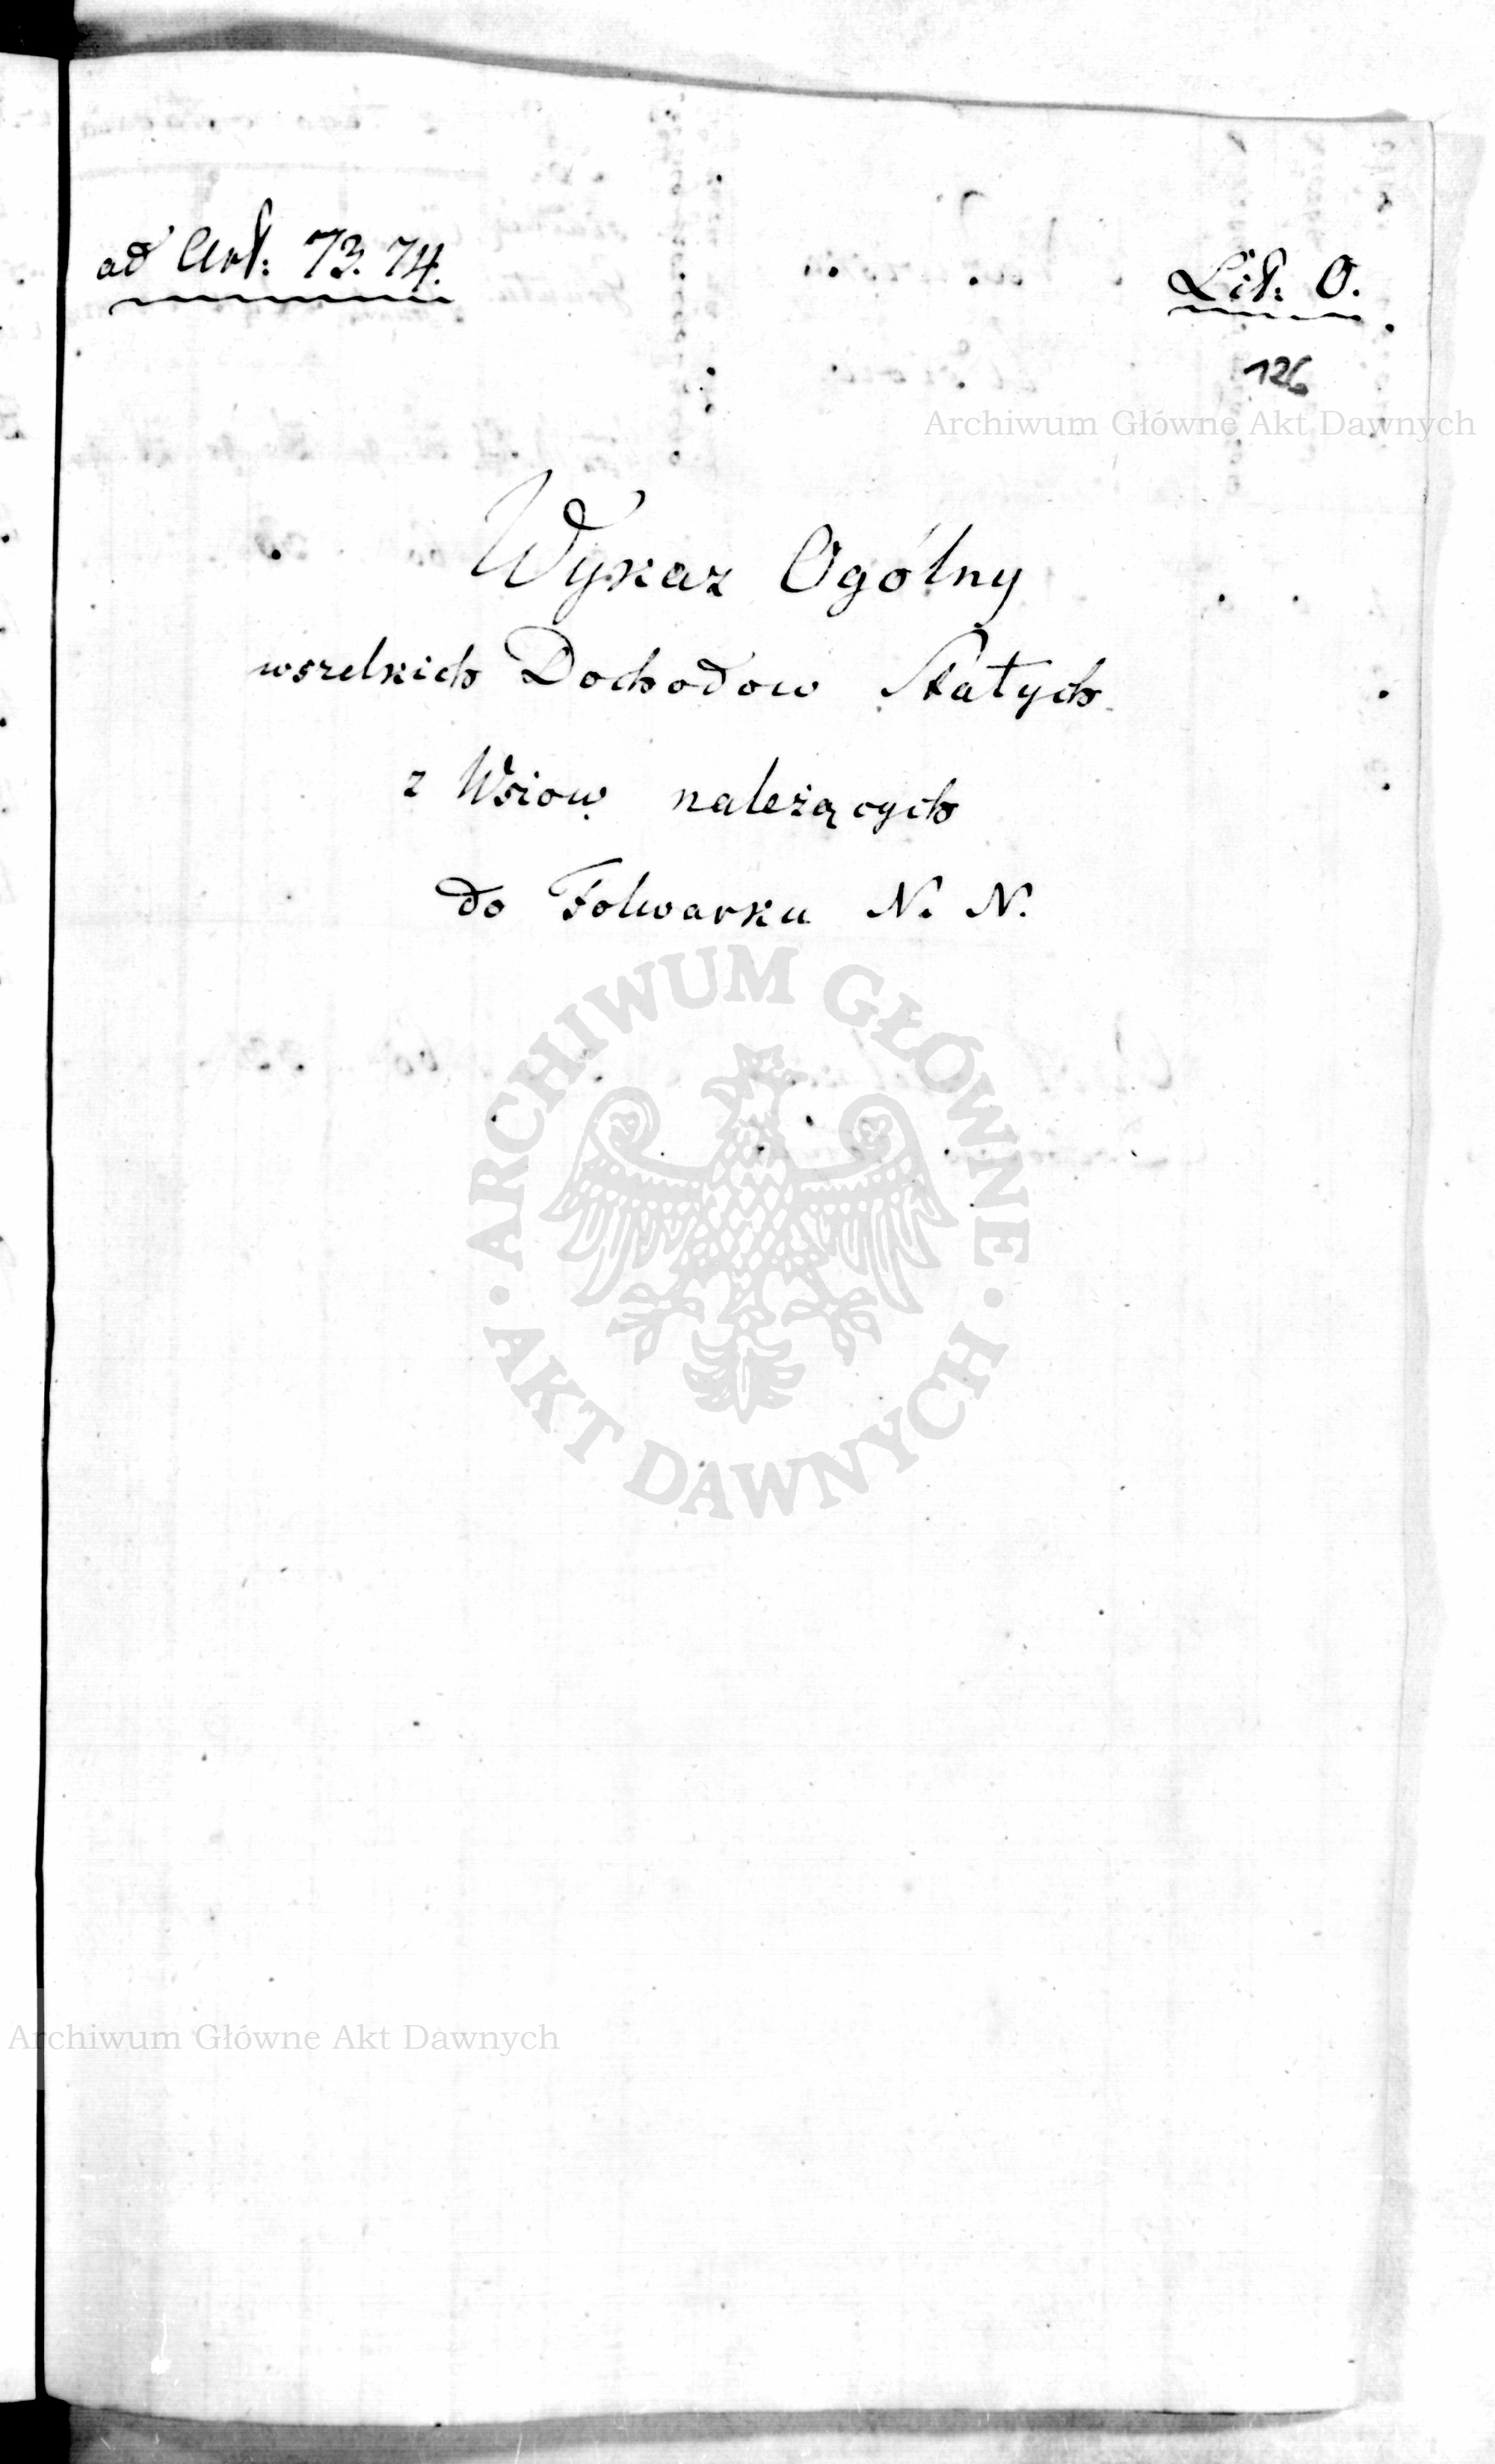 ad Art: 73. 74.
Lit: O.
126
Archiwum Główne Akt Dawnych
Wykaz Ogólny
wszelkich Dochodow Stałych
z Wsiow należących
do Folwarku N. N.
ARCHIWUM GŁÓWNE
AKT DAWNYCH
Archiwum Główne Akt Dawnych